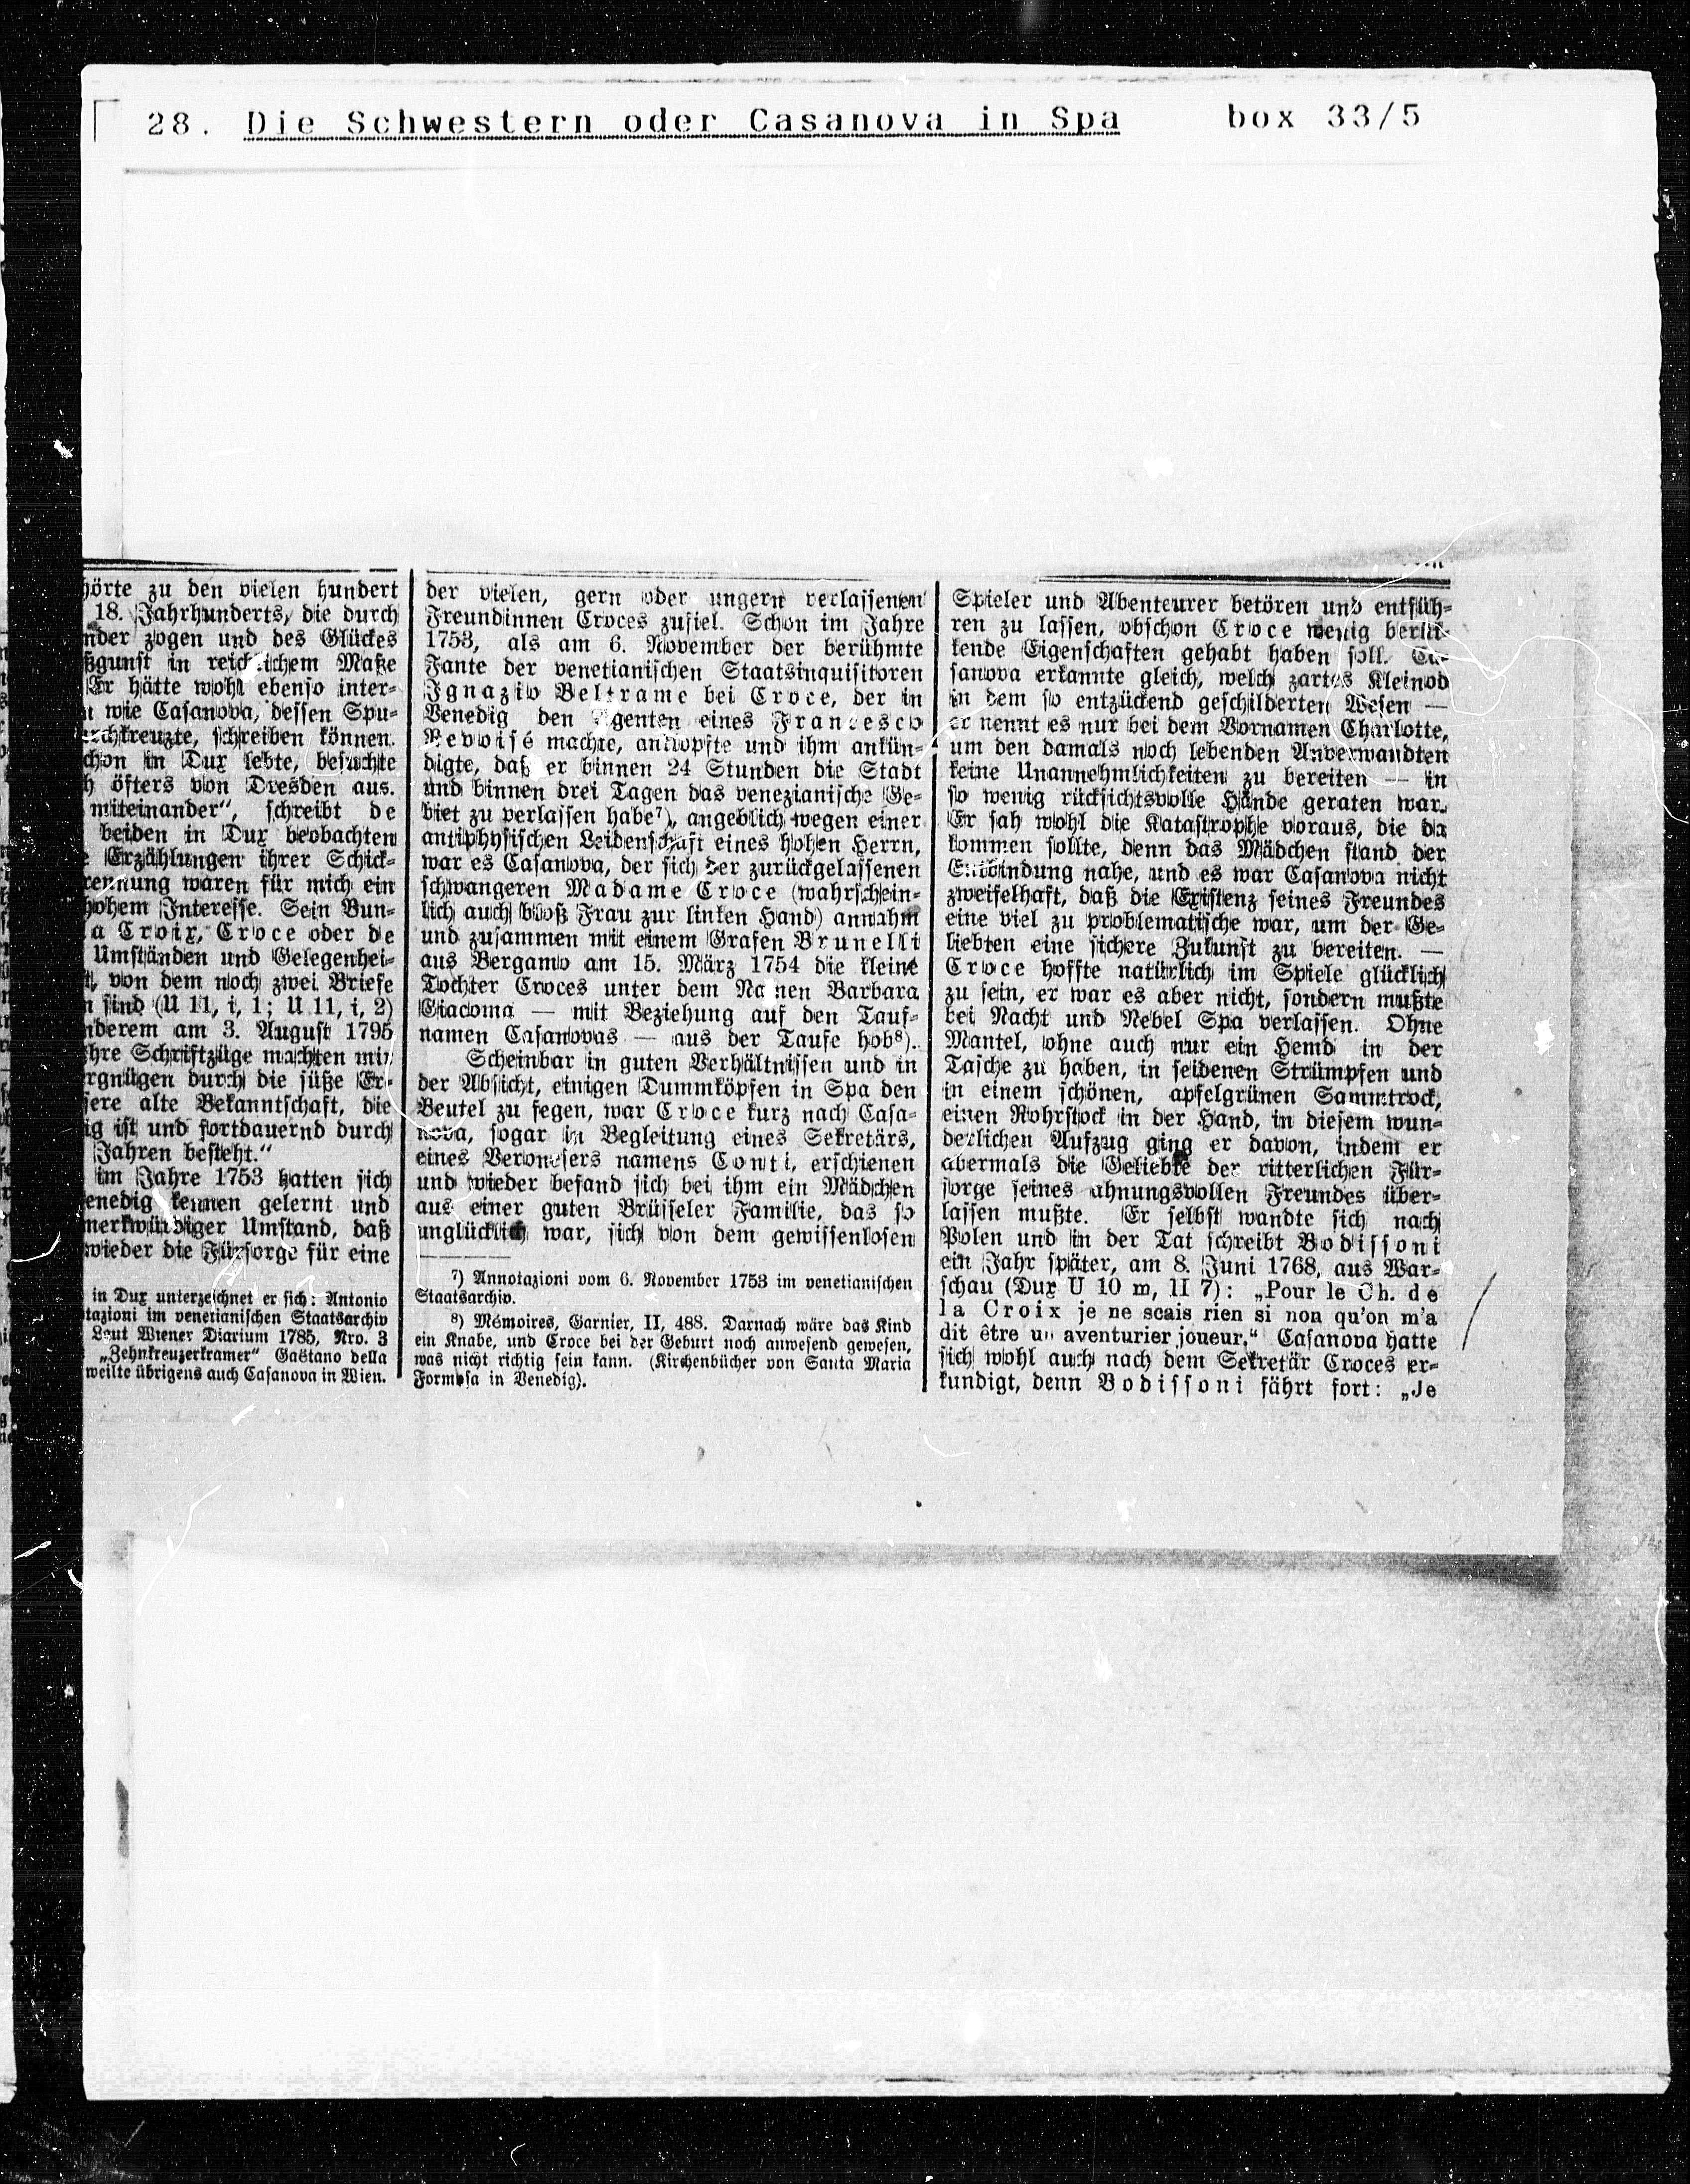 28. Die Schwestern oder Casanova in Spa box 33/5
hörte zu den vielen hundert
18. Jahrhunderts, die durch
nder zogen und des Glückes
ßgunst in reichlichem Maße
Er hätte wohl ebenso inter-
n wie Casanova, dessen Spu-
rchkreuzte, schreiben können.
chon in Dux lebte, besuchte
h öfters von Dresden aus.
miteinander“, schreibt de
beiden in Dux beobachten
e Erzählungen ihrer Schick-
rennung waren für mich ein
hohem Interesse. Sein Bun-
a Croix, Croce oder de
Umständen und Gelegenhei-
t, von dem noch zwei Briefe
n sind (U 11, i, 1; U 11, i, 2)
nderem am 3. August 1795
hre Schriftzüge machten mir
rgnügen durch die süße Er-
sere alte Bekanntschaft, die
ig ist und fortdauernd durch
Jahren besteht.“
im Jahre 1753 hatten sich
enedig kennen gelernt und
merkwürdiger Umstand, daß
wieder die Fürsorge für eine
in Dux unterzeichnet er sich: Antonio
tazioni im venetianischen Staatsarchiv
Laut Wiener Diarium 1785, Nro. 3
„Zehnkreuzerkramer“ Gaëtano della
weilte übrigens auch Casanova in Wien.
der vielen, gern oder ungern verlassenen
Freundinnen Croces zufiel. Schon im Jahre
1753, als am 6. November der berühmte
Fante der venetianischen Staatsinquisitoren
Ignazio Beltrame bei Croce, der in
Venedig den Agenten eines Francesco
machte, anklopfte und ihm ankün-
digte, daß er binnen 24 Stunden die Stadt
und binnen drei Tagen das venezianische Ge-
biet zu verlassen habe⁷), angeblich wegen einer
antiphysischen Leidenschaft eines hohen Herrn,
war es Casanova, der sich der zurückgelassenen
schwangeren Madame Croce (wahrschein-
lich auch bloß Frau zur linken Hand) annahm
und zusammen mit einem Grafen Brunelli
aus Bergamo am 15. März 1754 die kleine
Tochter Croces unter dem Namen Barbara
Giacoma — mit Beziehung auf den Tauf-
namen Casanovas — aus der Taufe hob⁸).
Scheinbar in guten Verhältnissen und in
der Absicht, einigen Dummköpfen in Spa den
Beutel zu fegen, war Croce kurz nach Casa-
nova, sogar in Begleitung eines Sekretärs,
eines Veronesers namens Conti, erschienen
und wieder befand sich bei ihm ein Mädchen
aus einer guten Brüsseler Familie, das so
unglücklich war, sich von dem gewissenlosen
⁷) Annotazioni vom 6. November 1753 im venetianischen
Staatsarchiv.
⁸) Mémoires, Garnier, II, 488. Darnach wäre das Kind
ein Knabe, und Croce bei der Geburt noch anwesend gewesen,
was nicht richtig sein kann. (Kirchenbücher von Santa Maria
Formosa in Venedig).
Spieler und Abenteurer betören und entfüh-
ren zu lassen, obschon Croce wenig berük-
kende Eigenschaften gehabt haben soll. Ca-
sanova erkannte gleich, welch zartes Kleinod
in dem so entzückend geschilderten Wesen —
er nennt es nur bei dem Vornamen Charlotte,
um den damals noch lebenden Anverwandten
keine Unannehmlichkeiten zu bereiten — in
so wenig rücksichtsvolle Hände geraten war.
Er sah wohl die Katastrophe voraus, die da
kommen sollte, denn das Mädchen stand der
Entbindung nahe, und es war Casanova nicht
zweifelhaft, daß die Existenz seines Freundes
eine viel zu problematische war, um der Ge-
liebten eine sichere Zukunft zu bereiten. —
Croce hoffte natürlich im Spiele glücklich
zu sein, er war es aber nicht, sondern mußte
bei Nacht und Nebel Spa verlassen. Ohne
Mantel, ohne auch nur ein Hemd in der
Tasche zu haben, in seidenen Strümpfen und
in einem schönen, apfelgrünen Sammtrock,
einen Rohrstock in der Hand, in diesem wun-
derlichen Aufzug ging er davon, indem er
abermals die Geliebte der ritterlichen Für-
sorge seines ahnungsvollen Freundes über-
lassen mußte. Er selbst wandte sich nach
Polen und in der Tat schreibt Bodissoni
ein Jahr später, am 8. Juni 1768, aus War-
schau (Dux U 10 m, II 7): „Pour le Ch. de
la Croix je ne scais rien si non qu'on m'a
dit être un aventurier joueur.“ Casanova hatte
sich wohl auch nach dem Sekretär Croces er-
kundigt, denn Bodissoni fährt fort: „Je